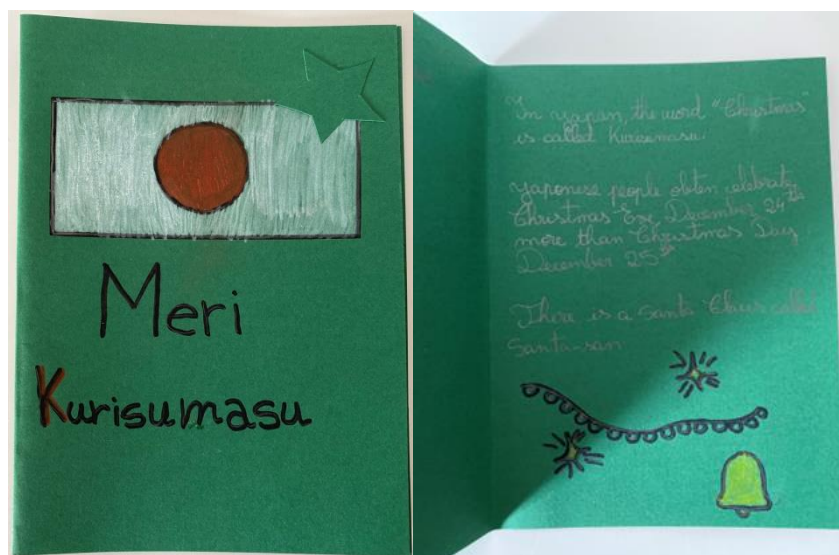 Meri
Kurisumasu
In yapan, the word "Christmas"
is called Kurisumasu.
yaponese people obten celebrate
Christmas Eve, December 24th
more than Christmas Day
December 25th
There is a Santa Claus called
Santa-san